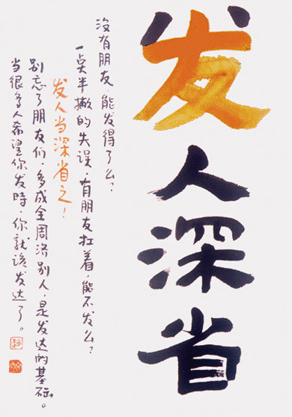 发人深省
没有朋友,能发得了么?
一点半撇的失误,有朋友扛着,能不发么?
发人当深省之!
别忘了朋友们,多成全周济别人,是发达的基础。
当很多人希望你发时,你就该发达了。